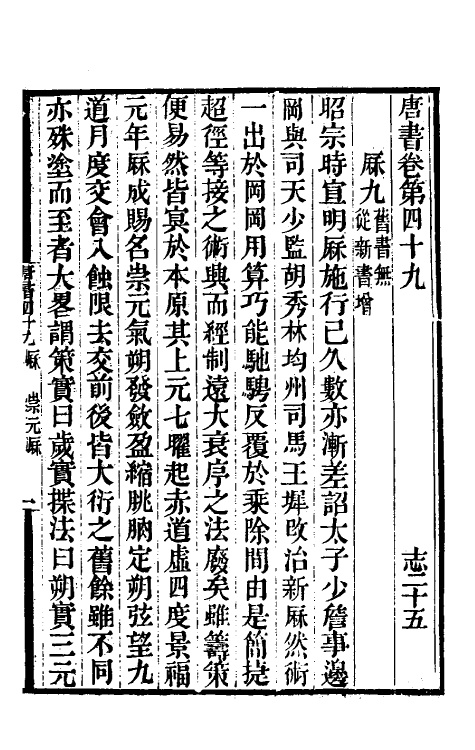 唐書卷第四十九　志二十五
厤九舊書無從新書增
昭宗時宣明厤施行已久數亦漸差詔太子少詹事邊
岡與司天少監胡秀林均州司馬王墀改治新厤然術
一出於岡岡用算巧能馳騁反覆於乘除間由是簡捷
超徑等接之術興而經制遠大衰序之法廢矣雖籌策
便易然皆冥於本原其上元七曜起赤道虛四度景福
元年厤成賜名崇元氣朔發斂盈縮朓朒定朔弦望九
道月度交會入蝕限去交前後皆大衍之舊餘雖不同
亦殊塗而至者大畧謂策實曰歲實揲法曰朔實三元
唐書四十九　厤　崇元厤　一